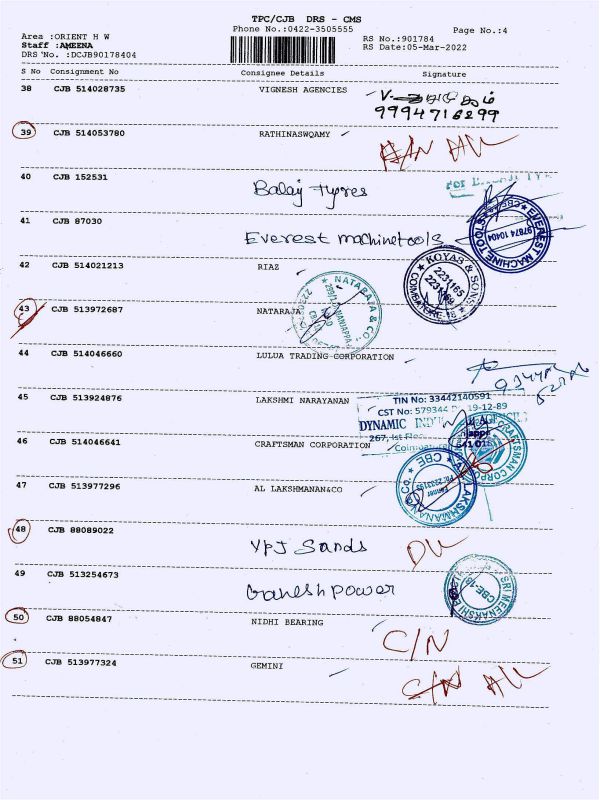 TPC/CJB DRS - CMS
Phone No.:0422-3505555
Page No.:4
Area :ORIENT H W
Staff :AMEENA
DRS No. :DCJB90178404
RS No.:901784
RS Date:05-Mar-2022
S No Consignment No Consignee Details Signature
38 CJB 514028735 VIGNESH AGENCIES
9994716299
39 CJB 514053780 RATHINASWQAMY
40 CJB 152531 Balaj Tyres
41 CJB 87030 Everest machine tools
EVEREST MACHINE TOOLS
97874 10404
42 CJB 514021213 RIAZ
KOYAS & SONS
2231165
COIMBATORE-18
43 CJB 513972687 NATARAJA
NATARAJA & CO.
44 CJB 514046660 LULUA TRADING CORPORATION
45 CJB 513924876 LAKSHMI NARAYANAN
TIN No: 33442140591
CST No: 579344 19-12-89
DYNAMIC
267, Ist
46 CJB 514046641 CRAFTSMAN CORPORATION
CRAFTSMAN CORP
47 CJB 513977296 AL LAKSHMANAN&CO
AL. LAKSHMANAN & Co.
CBE
48 CJB 88089022 YPJ Sands
49 CJB 513254673 Ganesh power
SRI MEENAKSHI
CBE-18
50 CJB 88054847 NIDHI BEARING C/N
51 CJB 513977324 GEMINI C/N